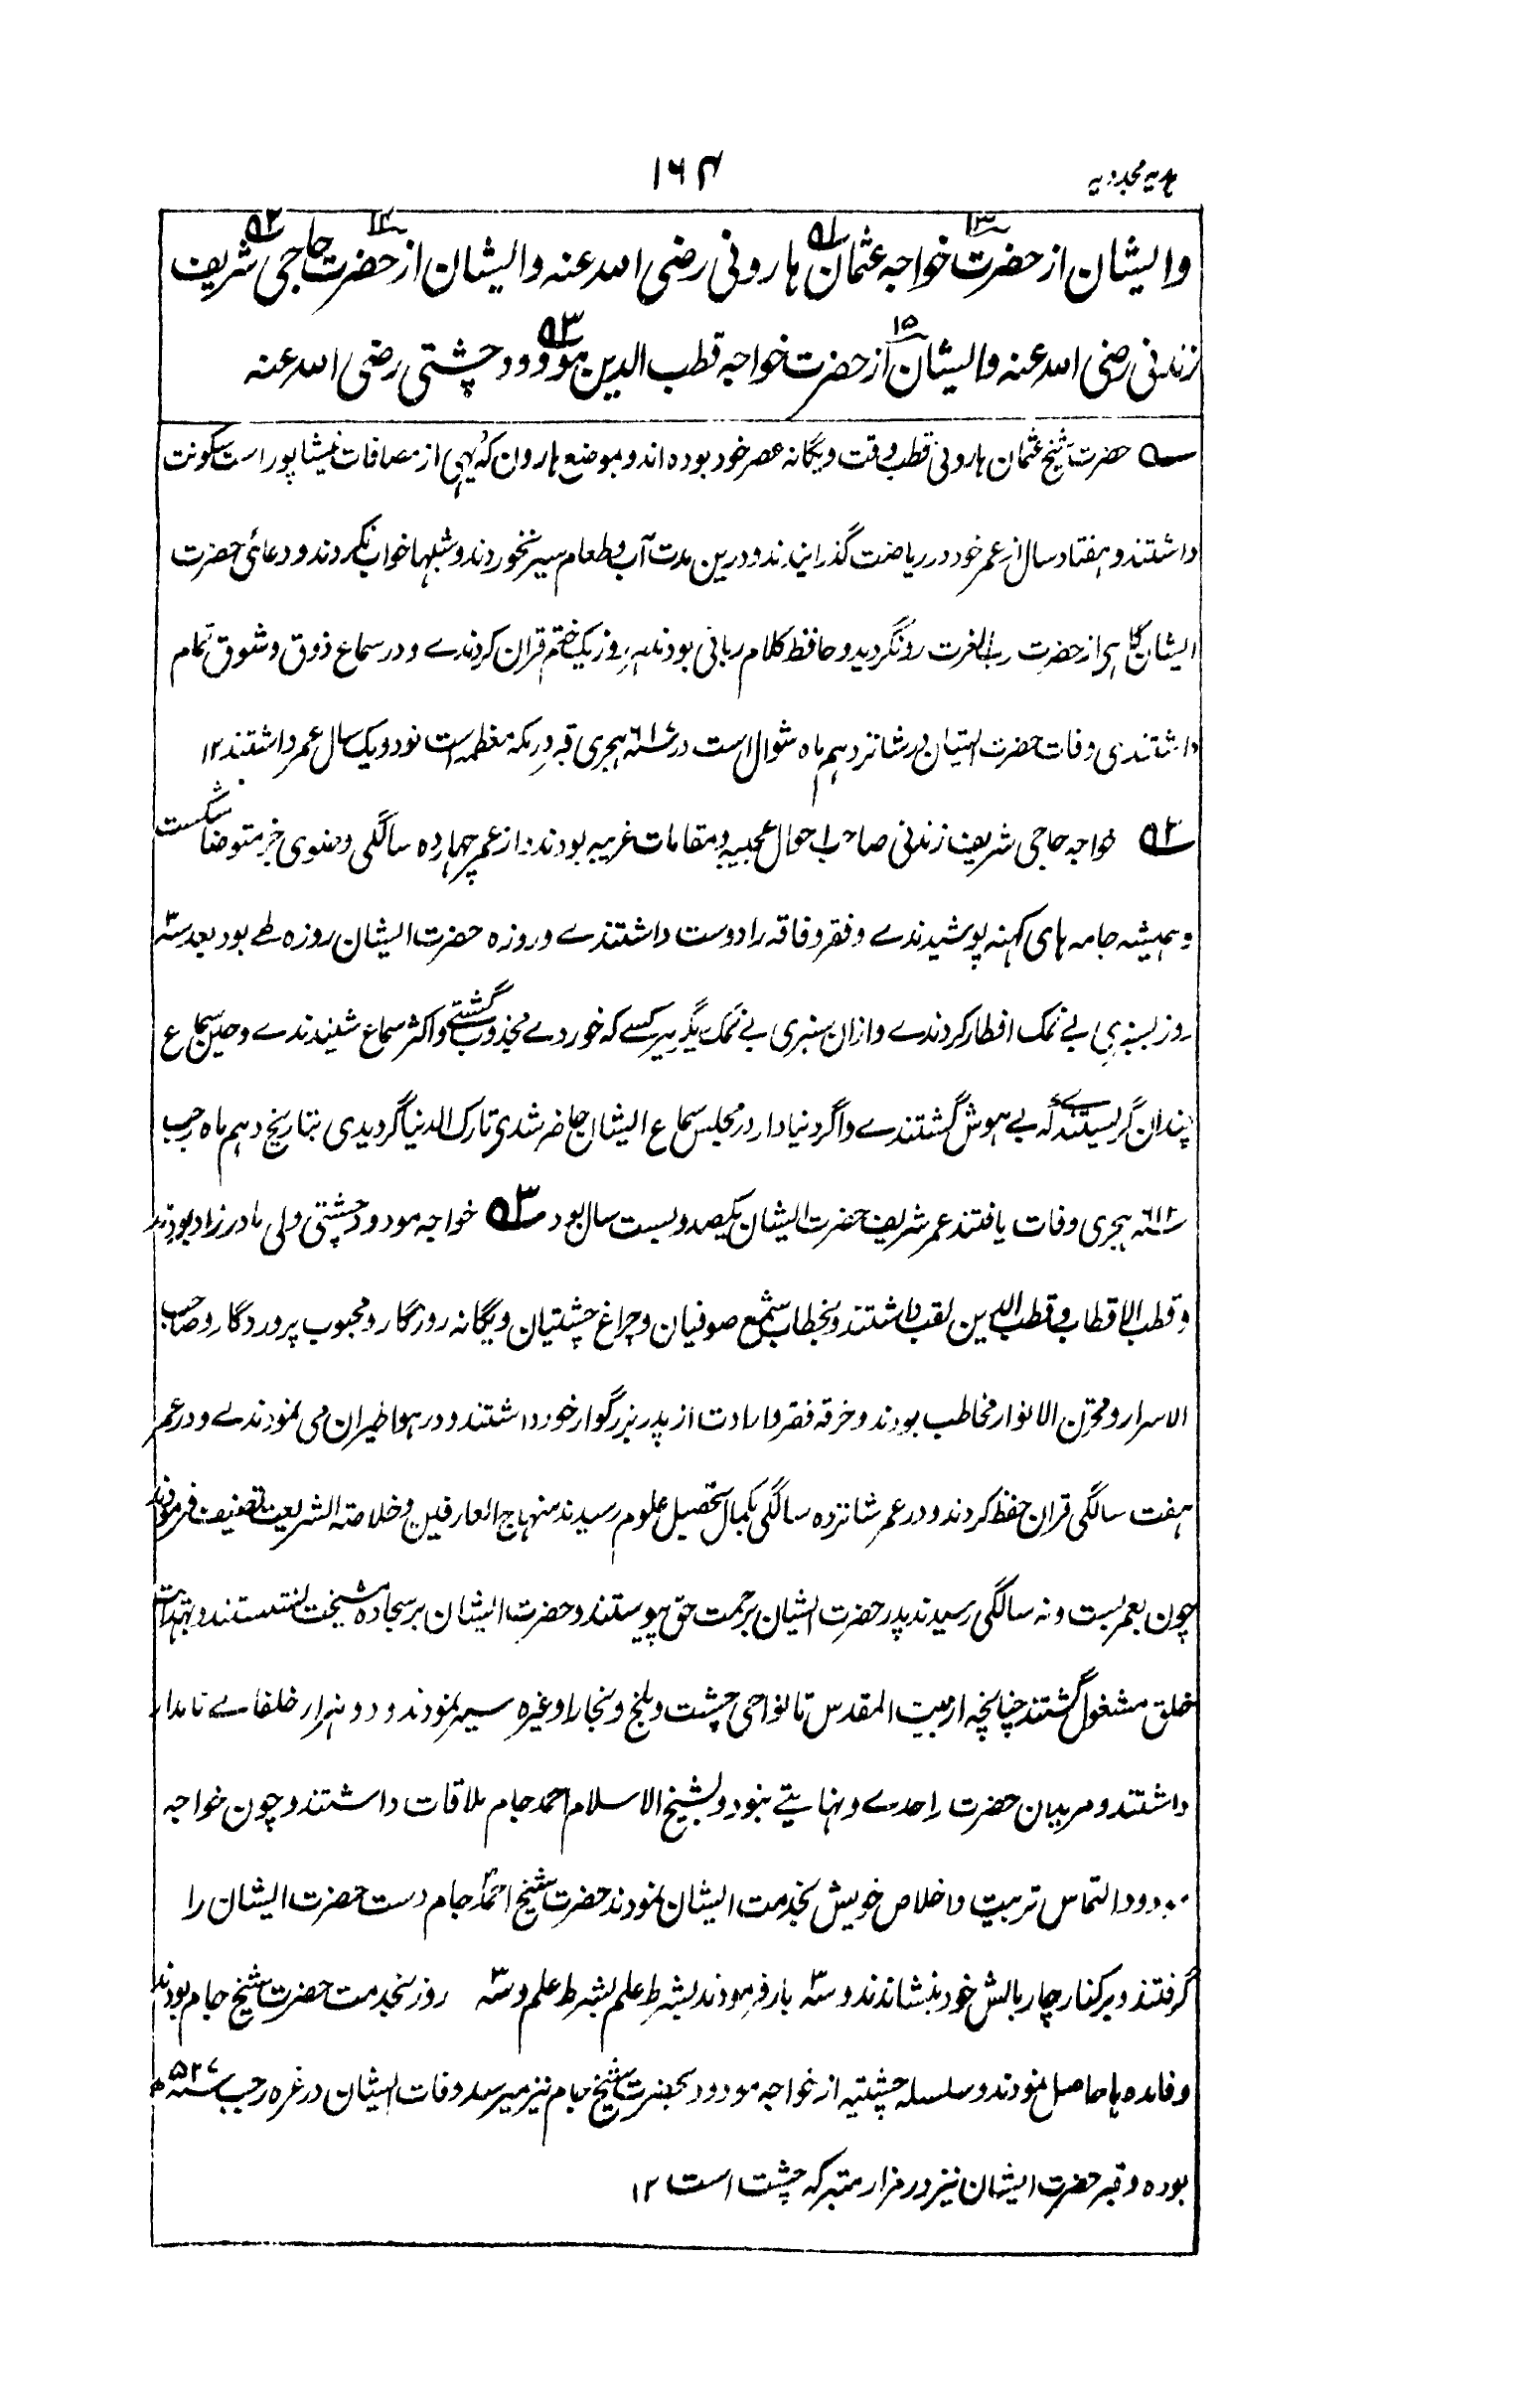 هدیه مجددیه
۱۶۴
وایشان از حضرت خواجه عثمان هارونی رضی الله عنه وایشان از حضرت حاجی شریف
زندنی رضی الله عنه وایشان از حضرت خواجه قطب الدین مودود چشتی رضی الله عنه
حضرت شیخ عثمان هارونی قطب وقت ویگانه عصر خود بوده اند وبموضع هارون که دیهی از مضافات نیشاپور است سکونت
داشتند وهفتاد سال از عمر خود در ریاضت گذرانیدند ودرین مدت آب وطعام سیر نخوردند وشبها خواب نکردند ودعائی حضرت
ایشان گاهی از حضرت رب العزت رد نگردید وحافظ کلام ربانی بودند هر روز یک ختم قران کردندے ودر سماع ذوق وشوق تمام
داشتندی وفات حضرت ایشان در شانزدهم ماه شوال است در سنه ۶۱۷ هجری قبر در مکه معظمه است نود ویک سال عمر داشتند ۱۲
۵۲ خواجه حاجی شریف زندنی صاحب احوال عجیبه ومقامات غریبه بودند از عمر چهارده سالگی وضوی جز متوضا نشکست
وهمیشه جامه های کهنه پوشیدندے وفقر وفاقه را دوست داشتندے وروزه حضرت ایشان روزه طے بود بعد سه
روز بسبزی بے نمک افطار کردندے وازان سبزی بے نمک دیگر هر کسے که خوردے مجذوب گشتے واکثر سماع شنیدندے وحین سماع
چندان گریستندے که بے هوش گشتندے واگر دنیادار در مجلس سماع ایشان حاضر شدی تارک الدنیا گردیدی بتاریخ دهم ماه رجب
سنه ۶۱۲ هجری وفات یافتند عمر شریف حضرت ایشان یکصد وبست سال بود ۵۳ خواجه مودود چشتی ولی مادرزاد بودند
وقطب الاقطاب وقطب الدین لقب داشتند وبخطاب شمع صوفیان وچراغ چشتیان ویگانه روزگار ومحبوب پروردگار وصاحب
الاسرار ومخزن الانوار مخاطب بودند وخرقه فقر وارادت از پدر بزرگوار خود داشتند ودر هوا طیران می نمودندے ودر عمر
هفت سالگی قران حفظ کردند ودر عمر شانزده سالگی بکمال تحصیل علوم رسیدند منهاج العارفین وخلاصة الشریعت تصنیف فرمودند
چون بعمر بست ونه سالگی رسیدند پدر حضرت ایشان برحمت حق پیوستند وحضرت ایشان بر سجاده مشیخت نشستند وبهدایت
خلق مشغول گشتند چنانچه از بیت المقدس تا نواحی چشت وبلخ وبخارا وغیره سیر نمودند ودو هزار خلفاے نامدار
داشتند ومریدان حضرت را حدے ونهایتے نبود وبشیخ الاسلام احمد جام ملاقات داشتند وچون خواجه
مودود التماس تربیت واخلاص خویش بخدمت ایشان نمودند حضرت شیخ احمد جام دست حضرت ایشان را
گرفتند وبر کنار چار بالش خود بنشاندند وسه بار فرمودند بشرط علم بشرط علم وسه روز بخدمت حضرت شیخ جام بودند
وفائده ها حاصل نمودند وسلسله چشتیه از خواجه مودود بحضرت شیخ جام نیز میرسد وفات ایشان در غره رجب سنه ۵۲۷ ه
بوده وقبر حضرت ایشان نیز در مزار متبرکه چشت است ۱۲